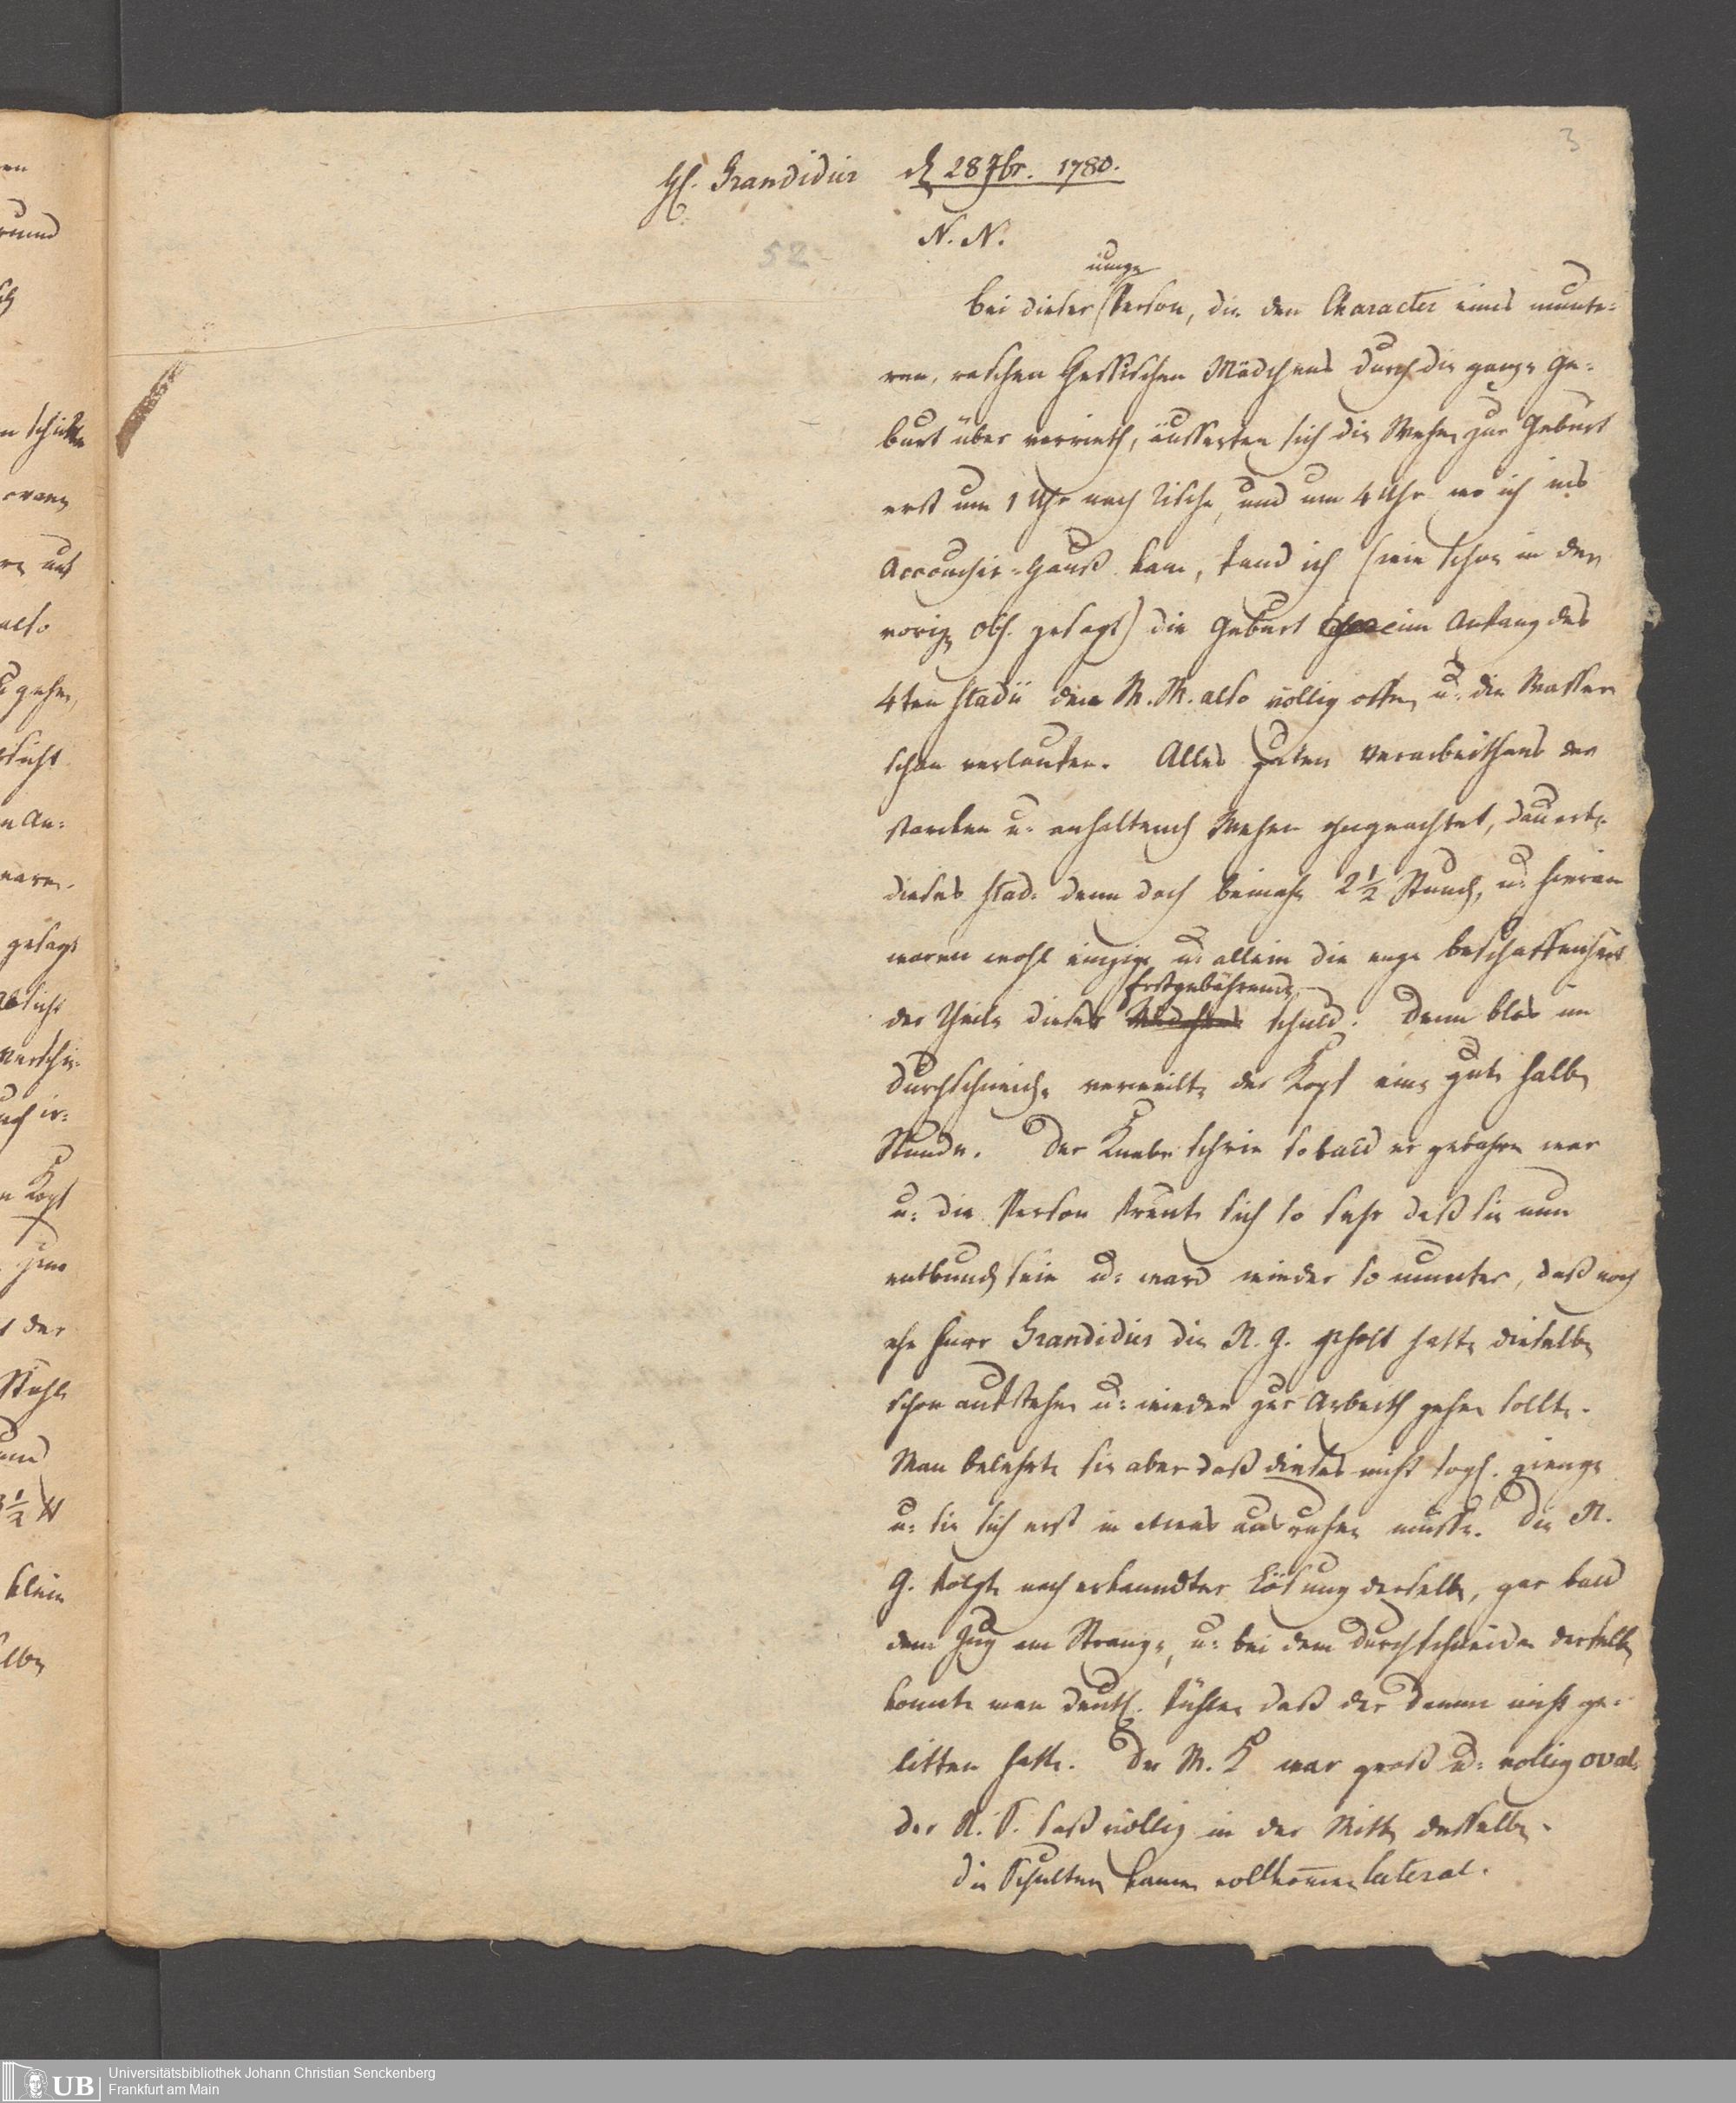 3
H. Grandidier d 28 7br. 1780.
N. N.
52
junge
Bei dieser Person, die den Character eines munte-
ren, raschen Hessischen Mädchens durch die ganze Ge-
burt über verrieth, äusserten sich die Wehen zur Geburt
erst um 1 Uhr nach Tische, und um 4 Uhr wo ich ins
Accouchir-Hauß kam, fand ich (wie schon in der
vorig. Obs. gesagt) die Geburt im Anfang des
4ten Stadii den M. M. also völlig offen u: die Wasser
schon verlaufen. Alles guten Verarbeithens der
starcken u: anhaltend. Wehen ohngeachtet, dauerte
dieses Stad: denn doch beinahe 2½ Stund, u: hieran
waren wohl einzige u: allein die enge Beschaffenheit
Erstgebährend.
der Theile dieser Mädchens schuld. Denn blos im
Durchschneid. verweilte der Kopf eine gute halbe
Stunde. Der Knabe schrie sobald er gebohren war
u: die Person freute sich so sehr daß sie nun
entbund. seie u: ward wieder so munter, daß noch
ehe Herr Grandidier die N. G. geholt hatte dieselbe
schon aufstehen u: wieder zur Arbeith gehen wollte.
Man belehrte sie aber daß dieses nicht sogl. gienge
u: sie sich erst in etwas ausruhen müsse. Die N.
G. folgte nach erkanndter Lösung derselben, gar bald
dem Zug am Strange, u: bei dem Durchschneiden derselben
konnte man deutl. fühlen daß der Damm nicht ge-
litten hatte. Der M. K war groß u: völlig oval.
der N. S. saß völlig in der Mitte desselben.
die Schultern kamen vollkommen lateral.
UB Universitätsbibliothek Johann Christian Senckenberg
Frankfurt am Main